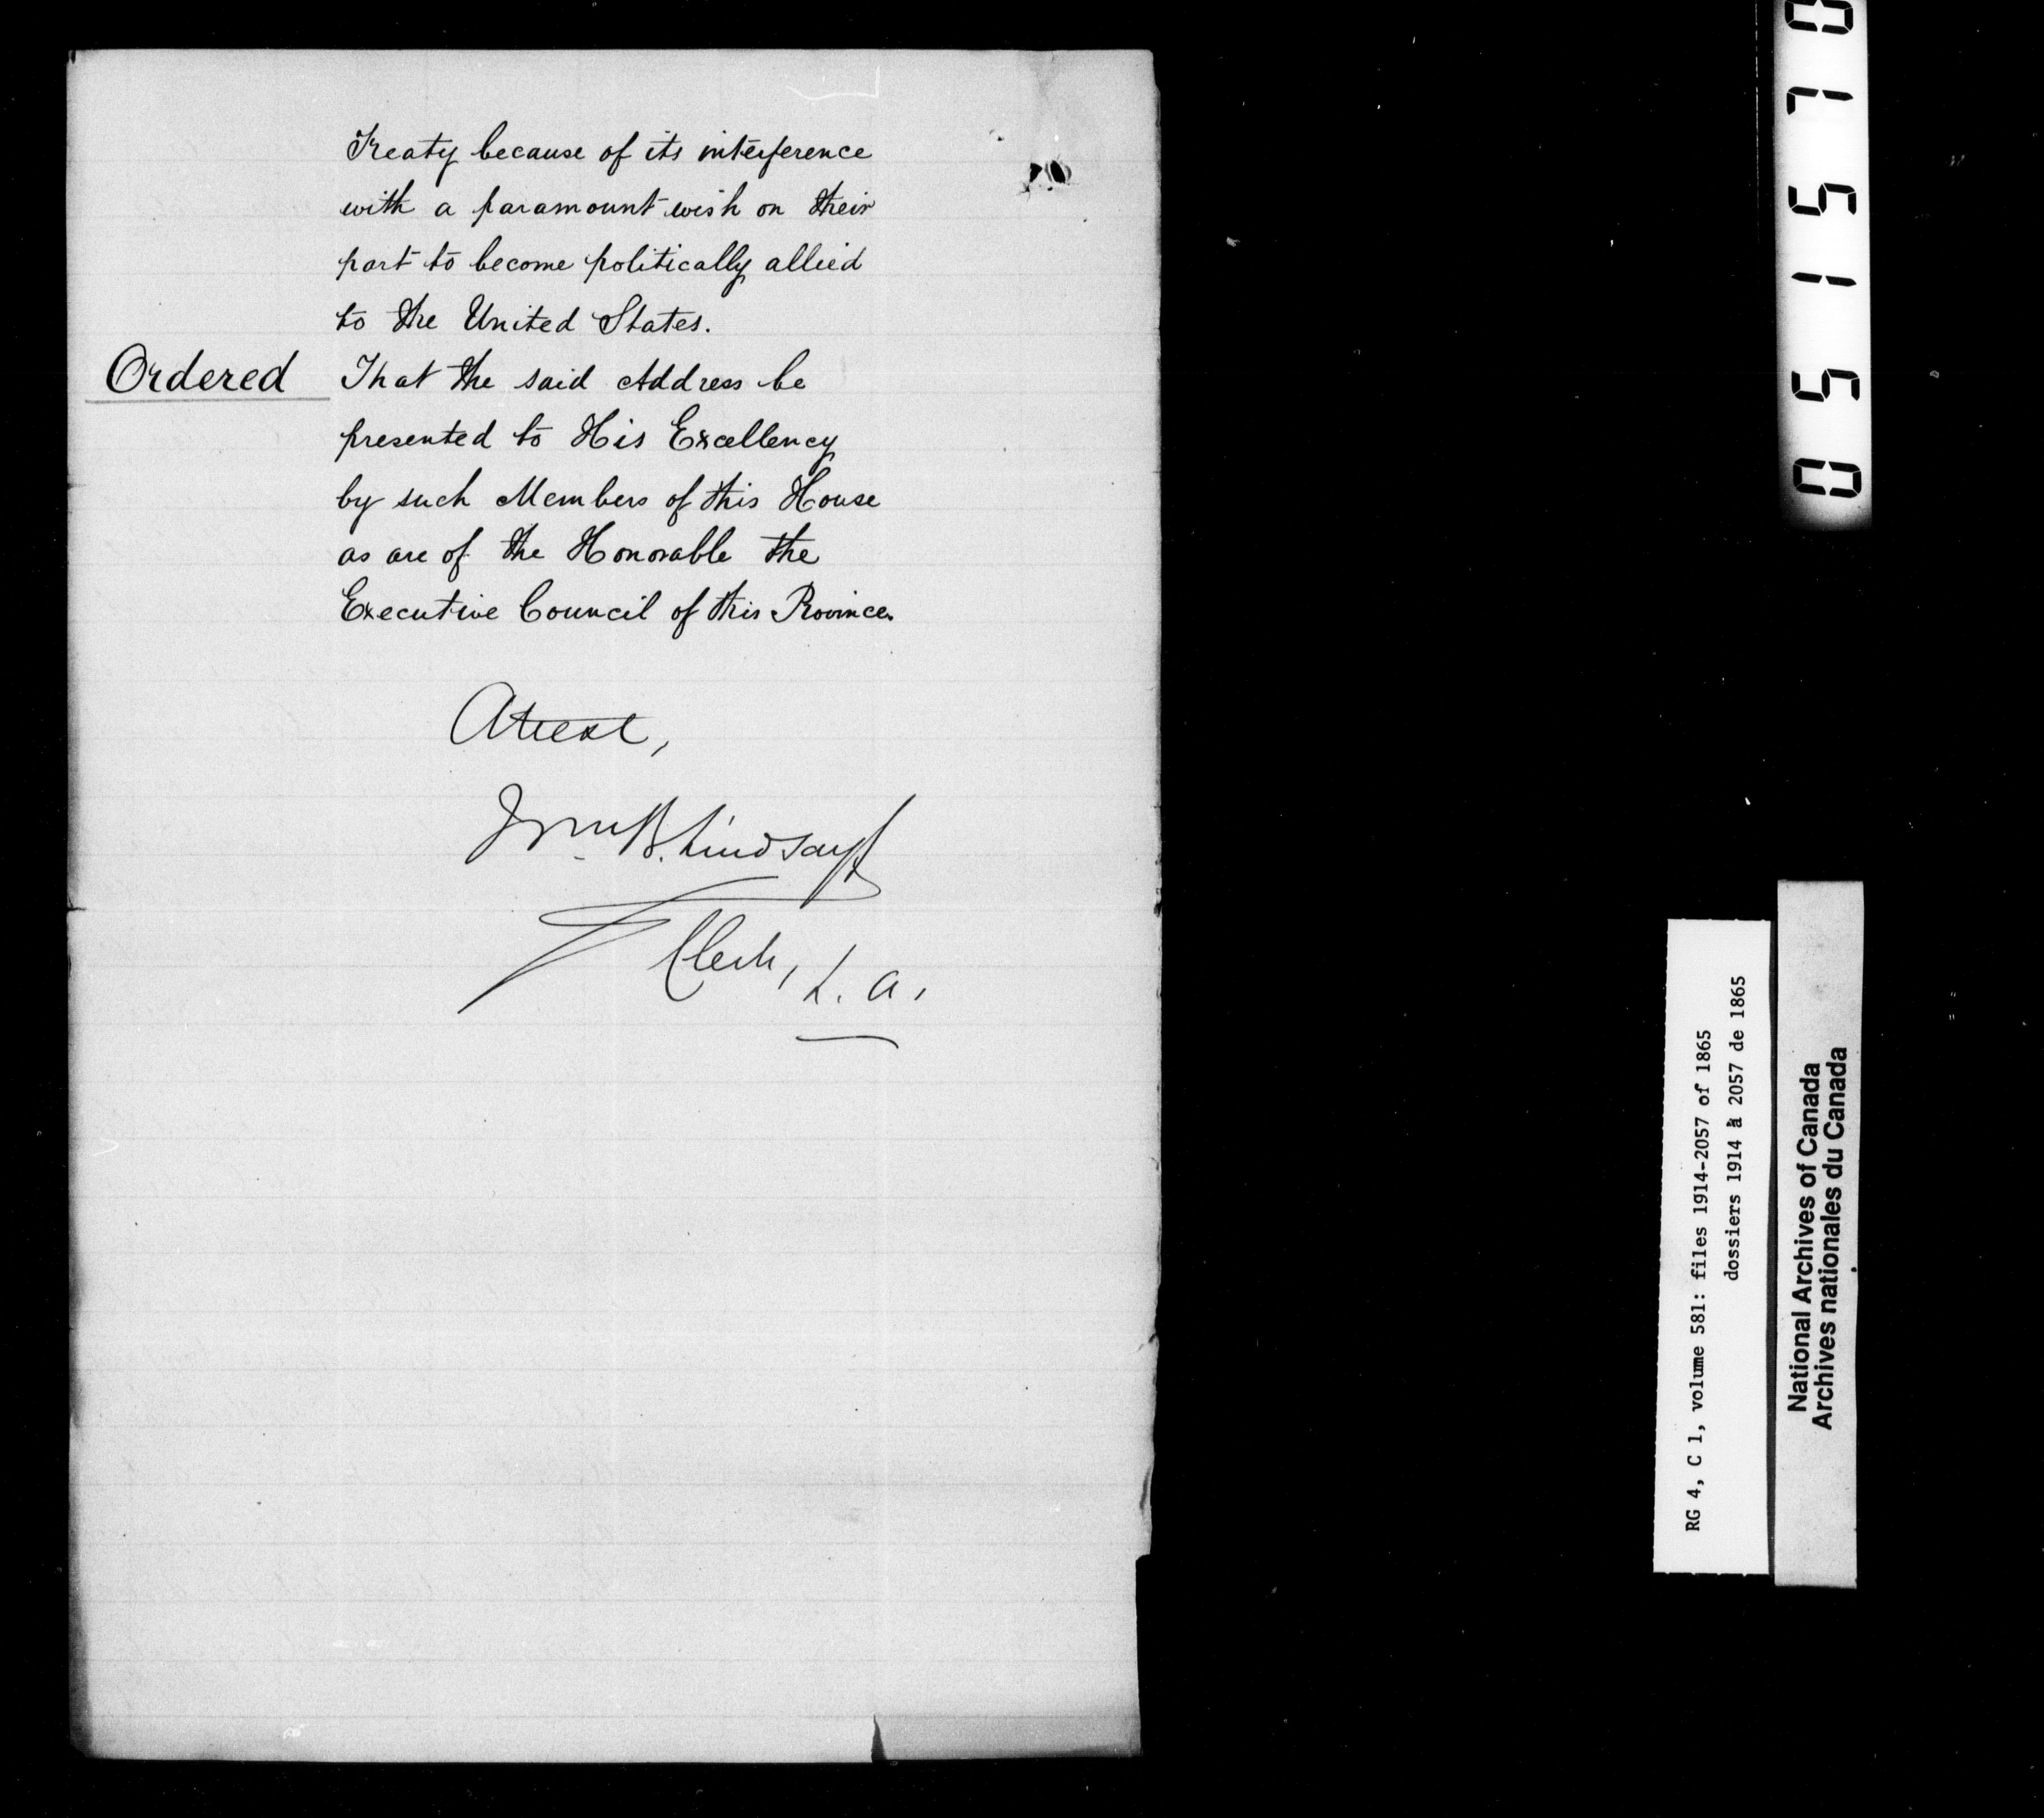 Treaty because of its interference
with a paramount wish on their
part to become politically allied
to the United States.
Ordered That the said Address be
presented to His Excellency
by such Members of this House
as are of the Honorable the
Executive Council of this Province.
Attest,
Wm B. Lindsay
Clerk, L. A.
051570
RG 4, C 1, volume 581: files 1914-2057 of 1865
dossiers 1914 à 2057 de 1865
National Archives of Canada
Archives nationales du Canada